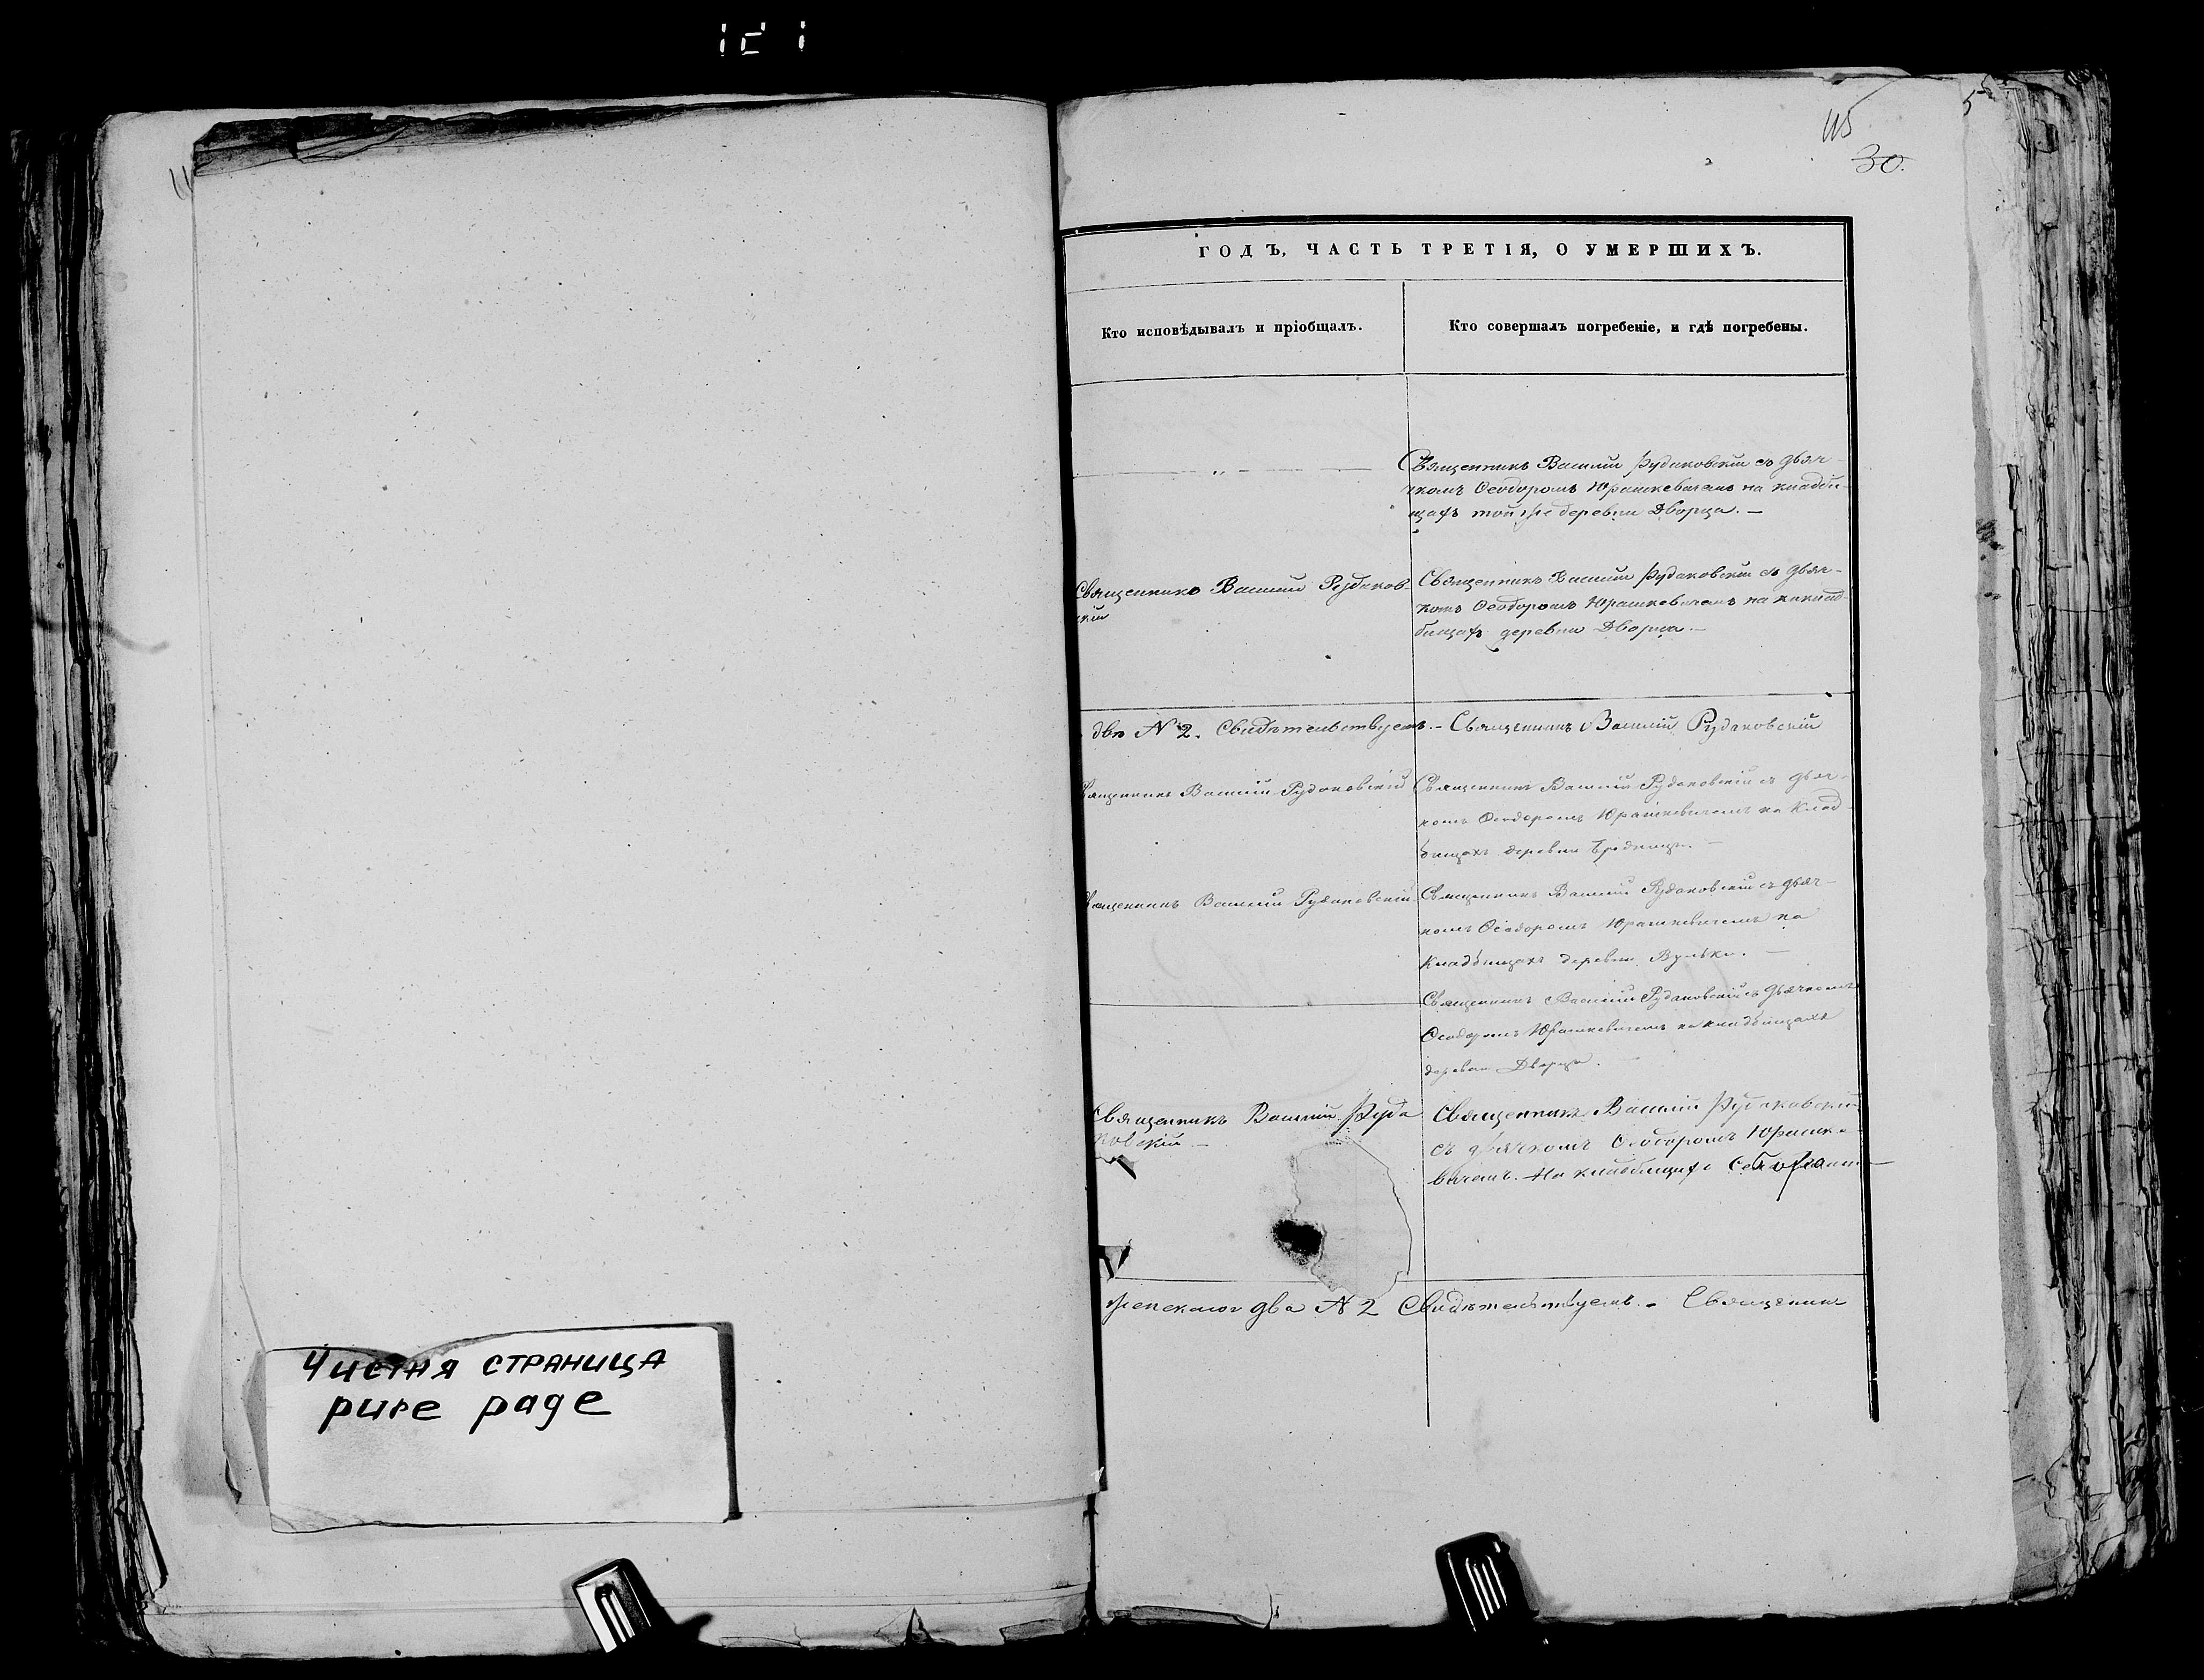 115
30.
5
ГОДЪ, ЧАСТЬ ТРЕТІЯ, О УМЕРШИХЪ.
Кто исповѣдывалъ и пріобщалъ.
Кто совершалъ погребеніе, и гдѣ погребены.
Священникъ Василій Рудаковскій съ дьяч-
комъ Ѳеодоромъ Юрашкевичемъ на кладби-
щахъ той же деревни Дворца. —
Священникъ Василій Рудаков-
скій
Священникъ Василій Рудаковскій съ дьяч-
комъ Ѳеодоромъ Юрашкевичемъ на кклад-
бищахъ деревни Дворца. —
два № 2. Свидѣтельствуемъ. – Священникъ Василій Рудаковскій
Священникъ Василій Рудаковскій
Священникъ Василій Рудаковскій съ дьяч-
комъ Ѳеодоромъ Юрашкевичемъ на Клад-
бищахъ деревни —
Священникъ Василій Рудаковскій
Священникъ Василій Рудаковскій съ дьяч-
комъ Ѳеодоромъ Юрашкевичемъ на
Кладбищахъ деревни Вульки. —
Священникъ Василій Рудаковскій съ Дьячкомъ
Ѳеодоромъ Юрашкевичемъ на кладбищахъ
деревни Дворца.
Священникъ Василій Руда
ковскій —
Священникъ Василій Рудаковскій
съ дьячкомъ Ѳеодоромъ Юрашке-
вичемъ. На кладбищахъ
женскаго два № 2 Свидѣтельствуемъ. – Священникъ
Чистая страница
pure page